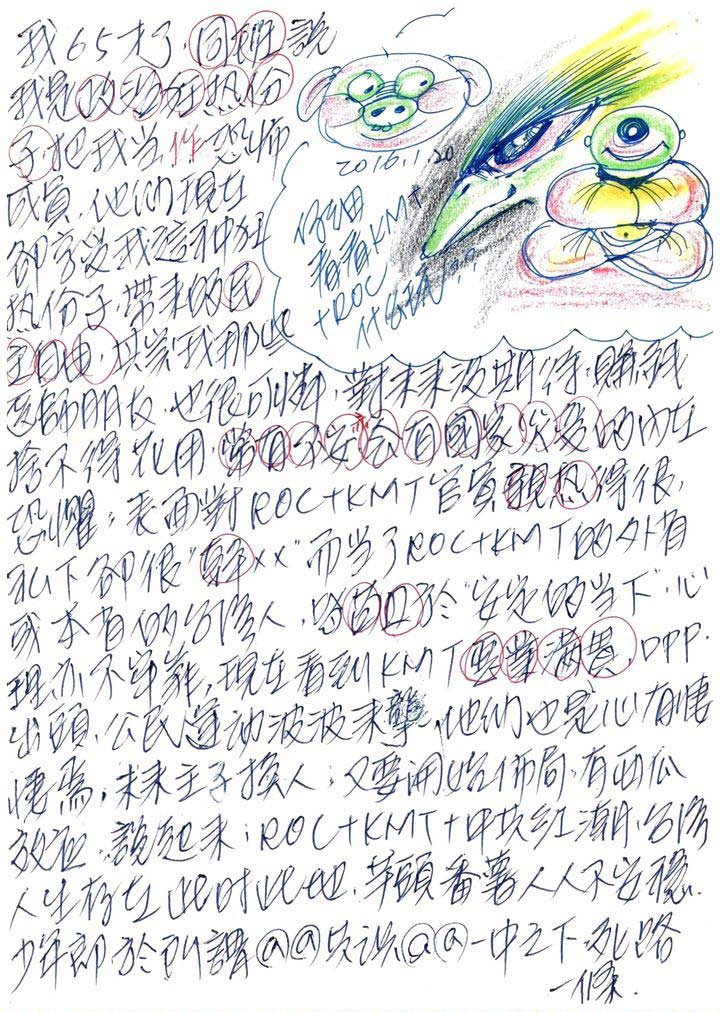 我65才了，同班說
我是政治狂热份
子，把我当作恐怖
成員，他們現在
卻享受我這种狂
热份子，帶來的民
主自由，其實我那些
醫師朋友，也很可憐，對未來沒期待，賺錢
捨不得花用，常有不安全有國家災變的內在
恐懼，表面對ROC+KMT官員親热得很，
私下卻很"幹××"而当了ROC+KMT的外省
或本省的台湾人，苟且於"安定的当下"，心
理亦不平靜，現在看到KMT惡業滿貫，DPP
出頭，公民運动波波來襲，他們也是心有悽
悽焉，未來主子換人；又要開始佈局，有西瓜
放和，說起來；ROC+KMT+中共红潮，台湾
人生存在此时此地，芋頭番薯人人不安穩，
少年郎於
@@
@@一中之下，死路
一條．
2016.1.20
仔細
看看KMT
+ROC
什么玩??